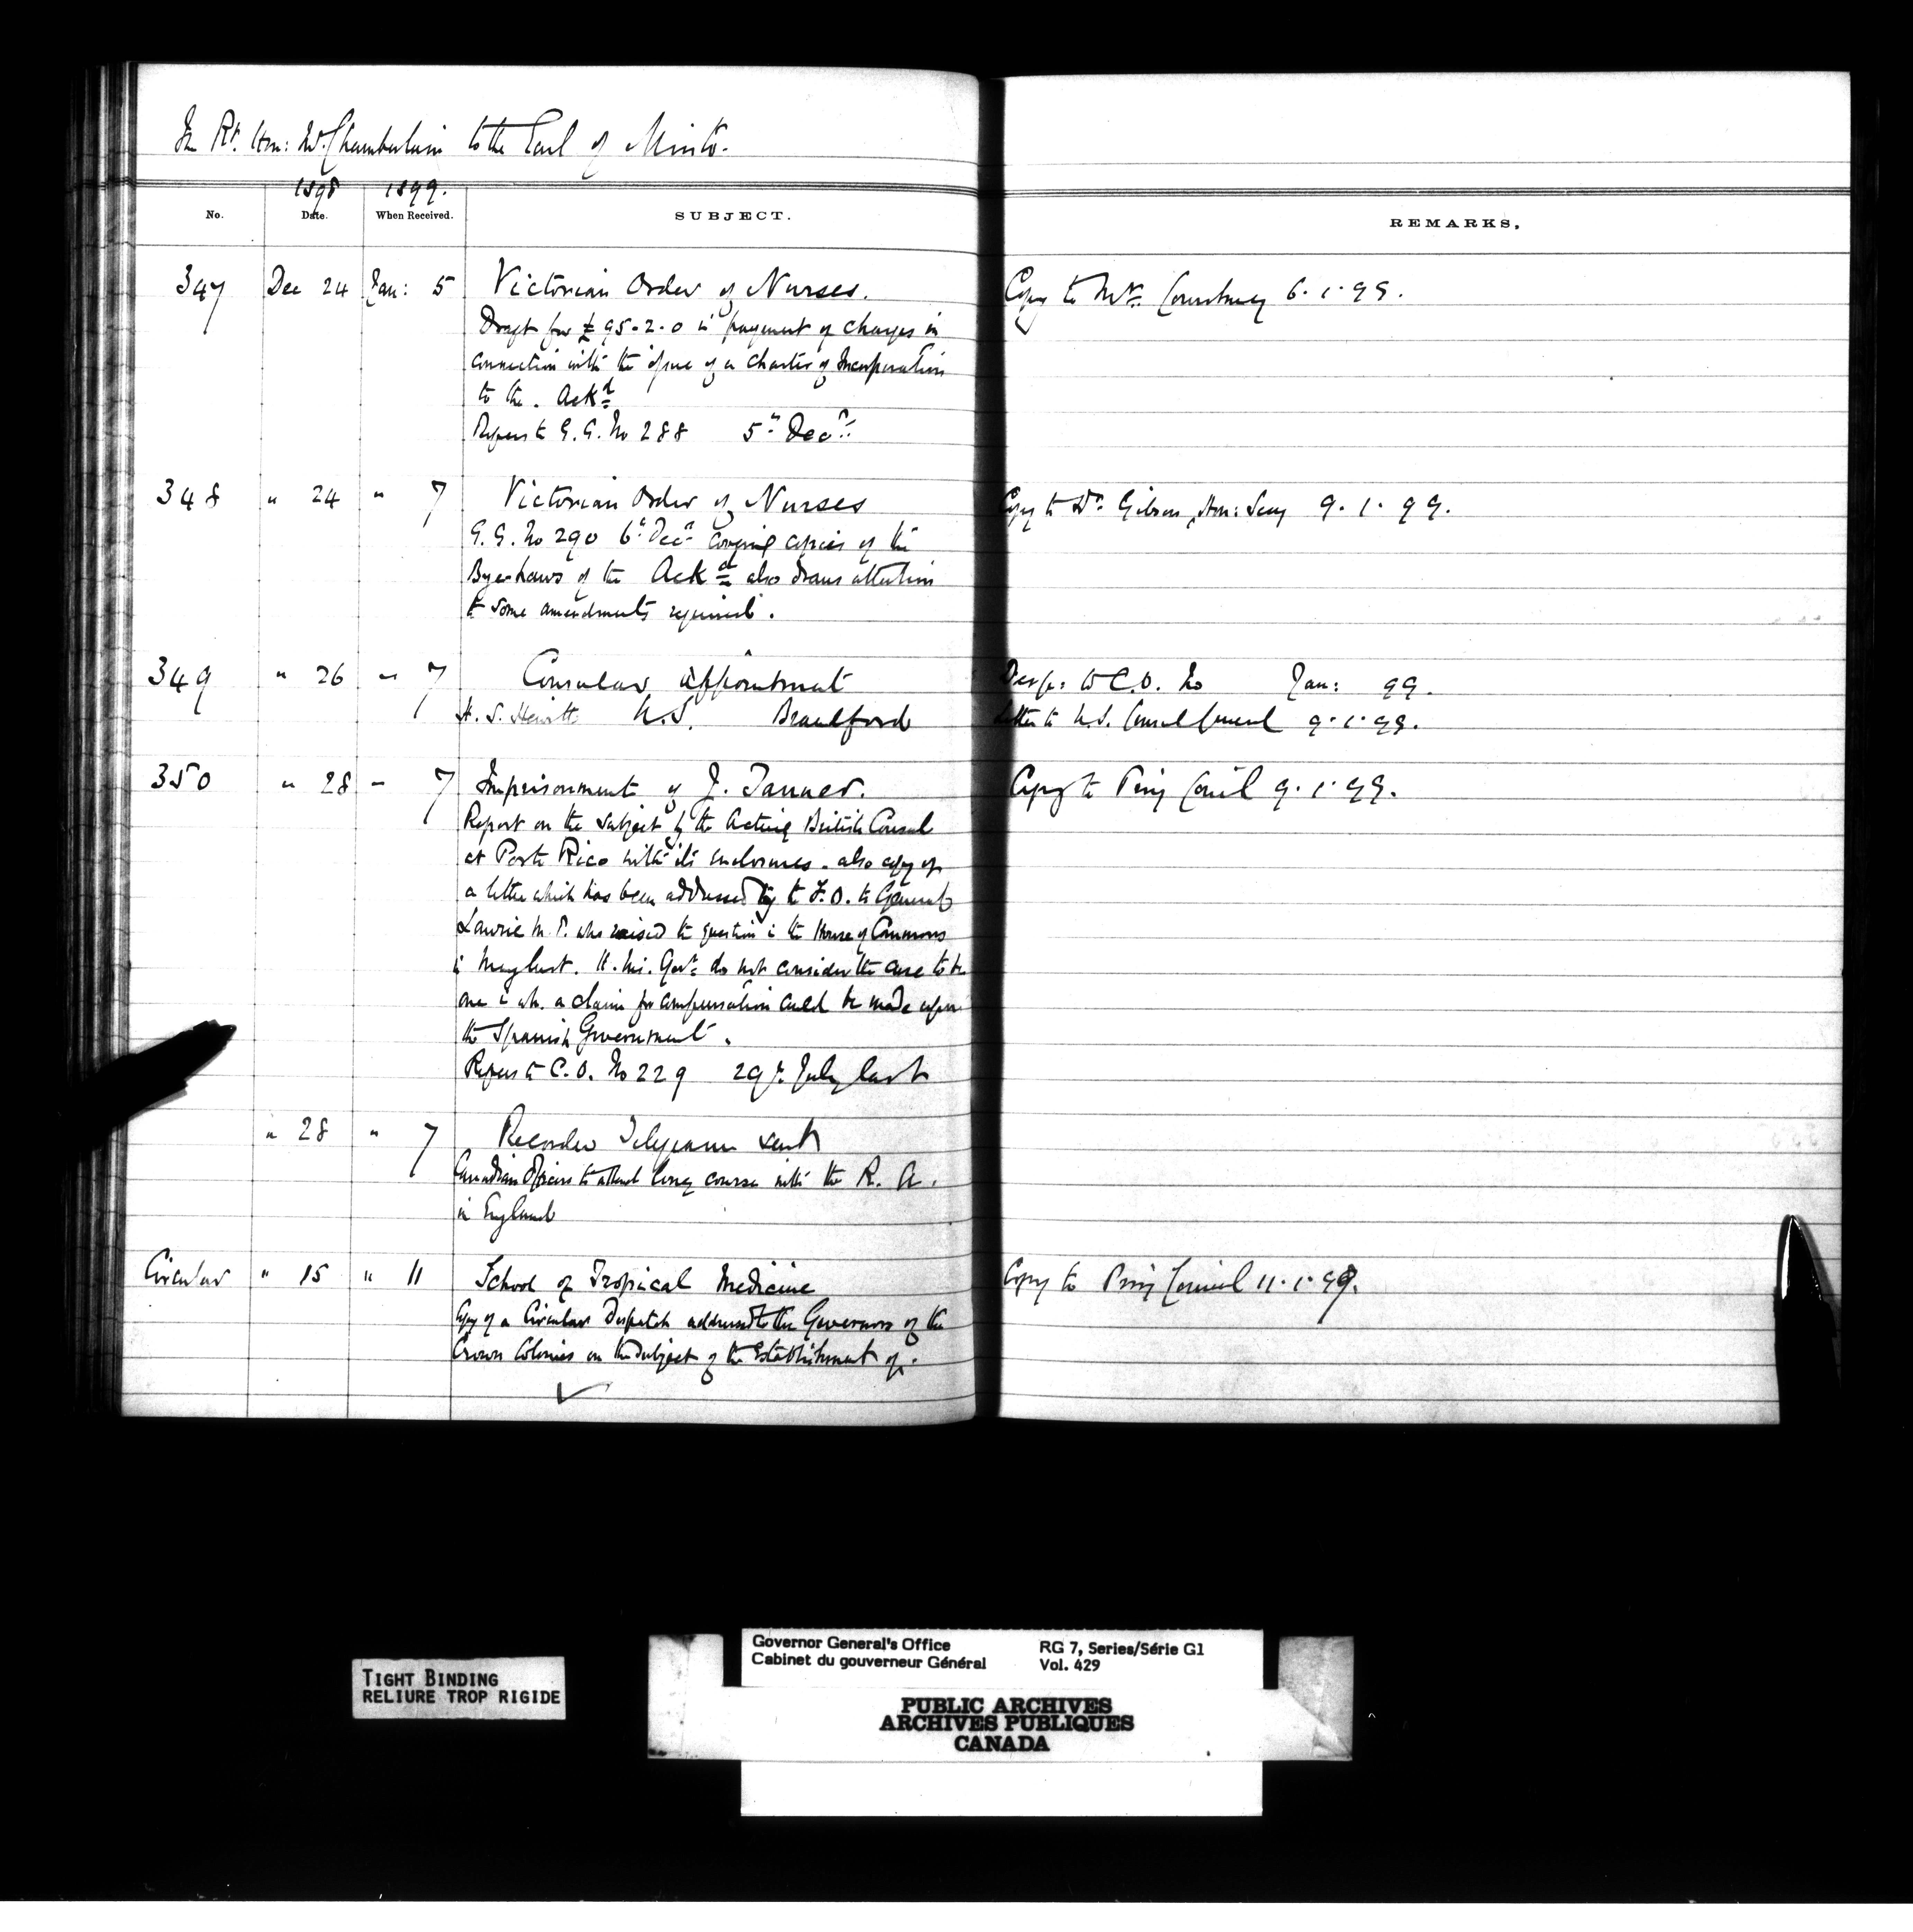 The Rt. Hon: Mr. Chamberlain to the Earl of Minto.
1898 1899.
No. Date. When Received. SUBJECT. REMARKS.
347 Dec 24 Jan: 5 Victorian Order of Nurses. Copy to Mr. Courtney 6.1.99.
Draft for £95.2.0 in payment of charges in
connection with the issue of a Charter of Incorporation
to the. Ackd
Refers to G.G. No 288 5th Decr:
348 " 24 " 7 Victorian Order of Nurses Copy to Dr. Gibson, Hon: Secy 9.1.99.
G.G. No 290 6th Decr covering copies of the
Bye-Laws of the Ackd also draws attention
to some amendments required.
349 " 26 " 7 Consular appointment Desp: to C.O. No Jan: 99.
H. S. Hewitt U.S. Brantford Letter to U.S. Consul General 9.1.99.
350 " 28 " 7 Imprisonment of J. Tanner. Copy to Privy Council 9.1.99.
Report on the subject by the Acting British Consul
at Porto Rico with its enclosures. also copy of
a letter which has been addressed by the F.O. to General
Laurie M.P. who raised the question in the House of Commons
in May last. H.M. Govt. do not consider the case to be
one in wh. a claim for compensation could be made upon
the Spanish Government.
Refers to C.O. No 229 29th July last
" 28 " 7 Recorder Telegram sent
Canadian Officers to attend long course with the R. A.
in England
Circular " 15 " 11 School of Tropical Medicine Copy to Privy Council 11.1.99.
Copy of a Circular Despatch addressed to the Governors of the
Crown Colonies on the subject of the Establishment of.
TIGHT BINDING
RELIURE TROP RIGIDE
Governor General's Office RG 7, Series/Série G1
Cabinet du gouverneur Général Vol. 429
PUBLIC ARCHIVES
ARCHIVES PUBLIQUES
CANADA